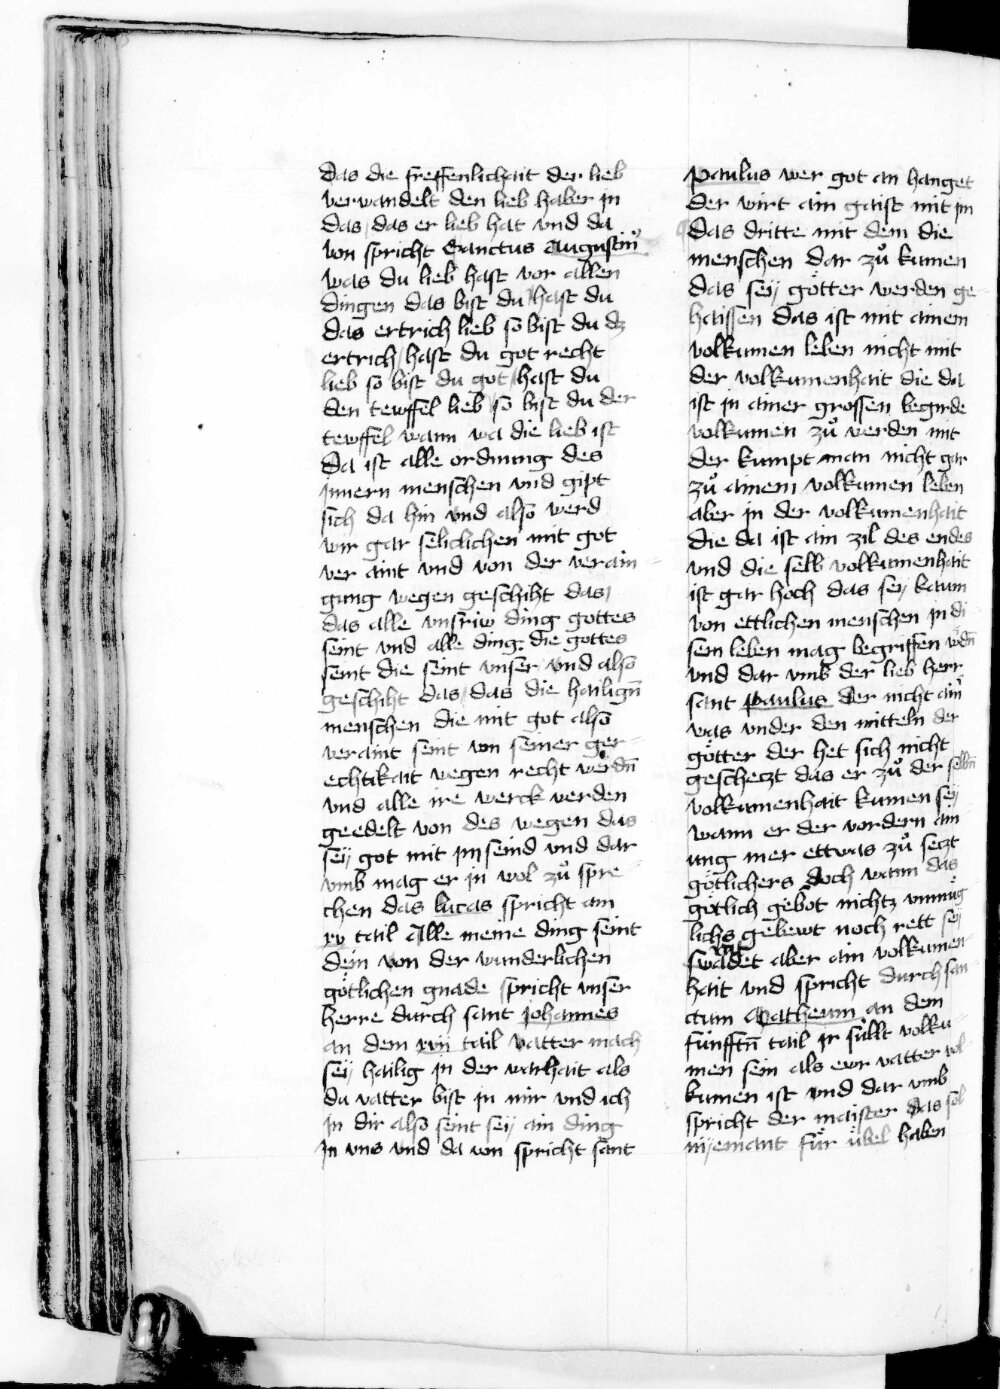 das die freffenlichait der lieb
verwandelt den lieb haber in
das / das er lieb hat vnd da
von spricht Sanctus Augustinꝰ
was du lieb hast vor allen
dingen das bist du / hast du
das ertrich lieb so bist du dz
ertrich / hast du got recht
lieb so bist du got / hast du
den tewffel lieb / so bist du der
tewffel wann wa die lieb ist
Da ist alle ordnung des
jnnern menschen vnd gipt
sich da hin vnd also werd
wir gar seliclichen mit got
ver aint vnd von der verain
gung wegen geschiht das /
das alle vnsriw ding gottes
seint vnd alle ding die gottes
seint die seint vnser / vnd also
geschiht das / das die hailign̄
menschen die mit got also
veraint seint von seiner ger-
echtikait wegen recht werdn̄
vnd alle ire werck werden
geedelt von des wegen das
seÿ got mit jm seind vnd dar
vmb mag er in wol zů spre-
chen das lucas spricht am
xv tail Alle meine ding seint
dein von der wunderlichen
götlichen gnade spricht vnser
herre durch sant johannes
an dem xvij tail vatter mach
seÿ hailig in der warhait als
du vatter bist in mir vnd ich
in dir also seint seÿ ain ding
In vns vnd da von spricht sant
Paulus wer got an hanget
der wirt ain gaist mit jm
das dritte mit dem die
menschen dar zů kumen
das seÿ götter werden ge-
haissen das ist mit ainem
volkumen leben nicht mit
der volkumenhait die da
ist in ainer grossen begirde
volkumen zů werden mit
der kumpt man nicht gar
zů ainem volkumen leben
aber in der volkumenhait
die da ist ain zil des endes
vnd die selb volkumenhait
ist gar hoch das seÿ kaum
von ettlichen menschen in di
sem leben mag begriffen wdn̄
vnd dar vmb der lieb herr
sant paulus der nicht ain
was vnder den mitteln der
götter der het sich nicht
geschetzt das er zů der selbn̄
volkumenhait kumen seÿ
wann er der vordern am
ung mer ettwas zů setzt
götlichers doch wann das
götlich gebot nichtz vnmüg
lichs gebewt noch rett seÿ
aber ain volkumen-
hait vnd spricht durch san
ctum Matheum an dem
fünfftn̄ tail Ir süllt volku-
men sein als ewr vatter vol
kumen ist vnd dar vmb
spricht der maister das sol
nÿemant für übel haben